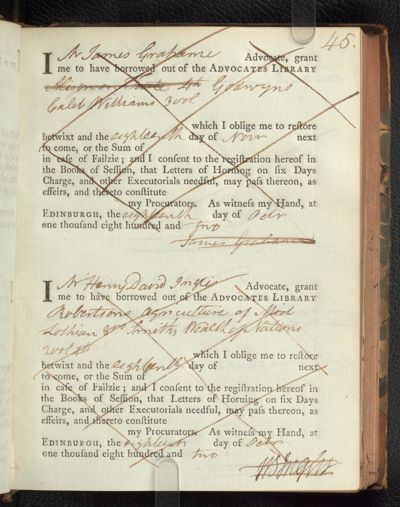 45.
I Mr James Grahame Advocate, grant
me to have borrowed out of the ADVOCATES LIBRARY
4to Godwyns
Caleb Williams 3 vol.
which I oblige me to reſtore
betwixt and the eighteenth day of Novr next
to come, or the Sum of
in caſe of Failzie; and I conſent to the regiſtration hereof in
the Books of Seſſion, that Letters of Horning on ſix Days
Charge, and other Executorials needful, may paſs thereon, as
effeirs, and thereto conſtitute
my Procurators. As witneſs my Hand, at
EDINBURGH, the eighteenth day of Octr
one thouſand eight hundred and two
James Grahame
I Mr Harry David Inglis Advocate, grant
me to have borrowed out of the ADVOCATES LIBRARY
Robertsons Agriculture of Mid
Lothian 8vo Smiths Wealth of Nations
2 vol 4to
which I oblige me to reſtore
betwixt and the eighteenth day of next
to come, or the Sum of
in caſe of Failzie; and I conſent to the regiſtration hereof in
the Books of Seſſion, that Letters of Horning on ſix Days
Charge, and other Executorials needful, may paſs thereon, as
effeirs, and thereto conſtitute
my Procurators. As witneſs my Hand, at
EDINBURGH, the eighteenth day of Octr
one thouſand eight hundred and two
HD Inglis